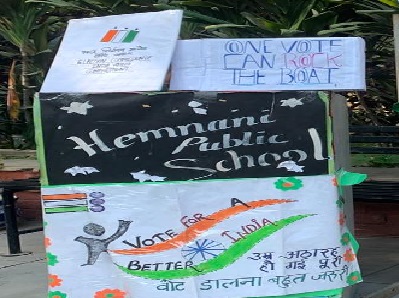 ONE VOTE
CAN ROCK
THE BOAT
Hemnani
Public
School
VOTE FOR A
BETTER INDIA
उम्र अठारह
हो गई पूरी
वोट डालना बहुत जरूरी